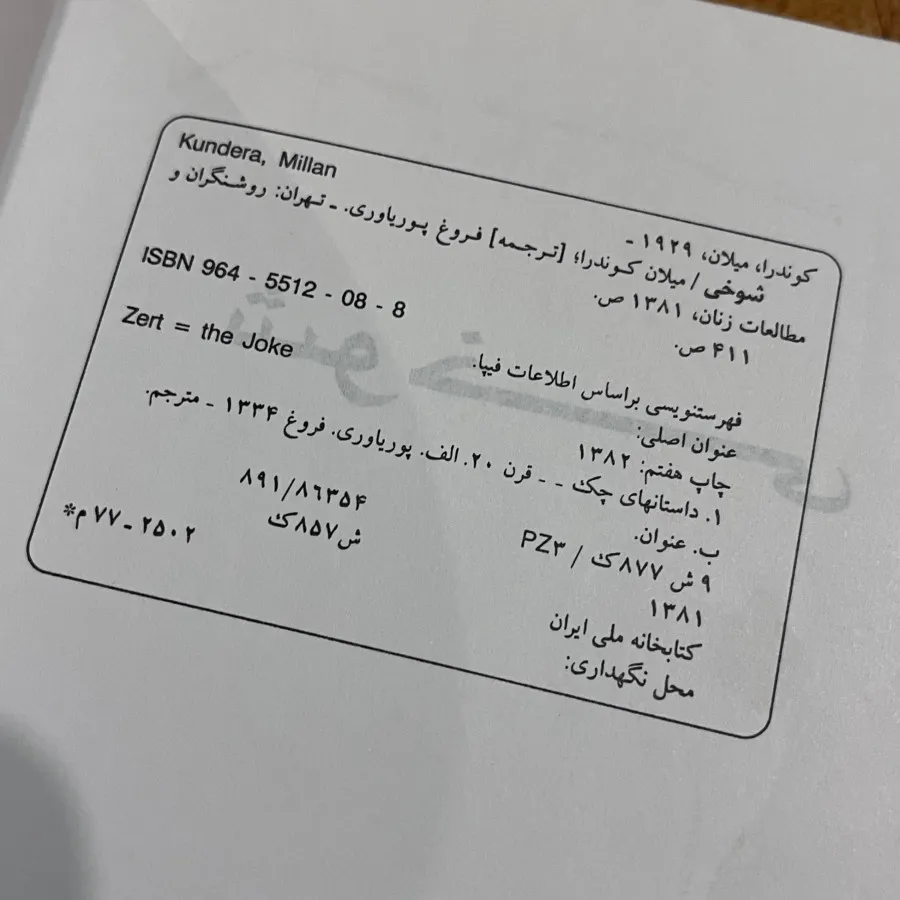 Kundera, Millan
کوندرا، میلان، ۱۹۲۹ -
شوخی / میلان کوندرا؛ [ترجمه] فروغ پوریاوری. ـ تهران: روشنگران و
مطالعات زنان، ۱۳۸۱ ص.
۴۱۱ ص.
ISBN 964 - 5512 - 08 - 8
فهرستنویسی براساس اطلاعات فیپا.
عنوان اصلی: Zert = the Joke
چاپ هفتم: ۱۳۸۲
۱. داستانهای چک - - قرن ۲۰. الف. پوریاوری. فروغ ۱۳۳۴ ـ مترجم.
ب. عنوان.
۹ ش ۸۷۷ک / PZ۳ ۸۹۱/۸۶۳۵۴
۱۳۸۱ ش۸۵۷ک
کتابخانه ملی ایران ۲۵۰۲ ـ ۷۷ م*
محل نگهداری:
شوخی